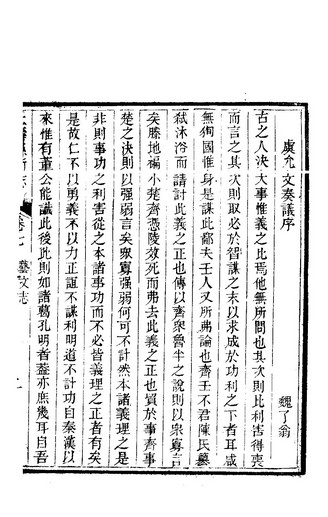 虞允文奏議序
魏了翁
古之人決大事惟義之比焉他無所問也其次則比利害得喪
而言之其次則取必於智謀之末以求成於功利之下者耳咸
無徇國惟身是謀此鄙夫壬人又所弗論也齊壬不君陳氏簒
弒沐浴而請討此義之正也傳以齊衆魯半之說則以衆寡言
矣滕地褊小楚齊憑陵效死而弗去此義之正也築于齊事齊事
楚之決則以强弱言矣衆寡强弱何可不計然本諸義理之是
非則事功之利害從之本諸事功而不必皆義理之正者有矣
是故仁不以勇義不以力正誼不謀利明道不計功自秦漢以
來惟有董公能識此後此則如諸葛孔明者蓋亦庶幾耳自吾
卷七
藝文志
一